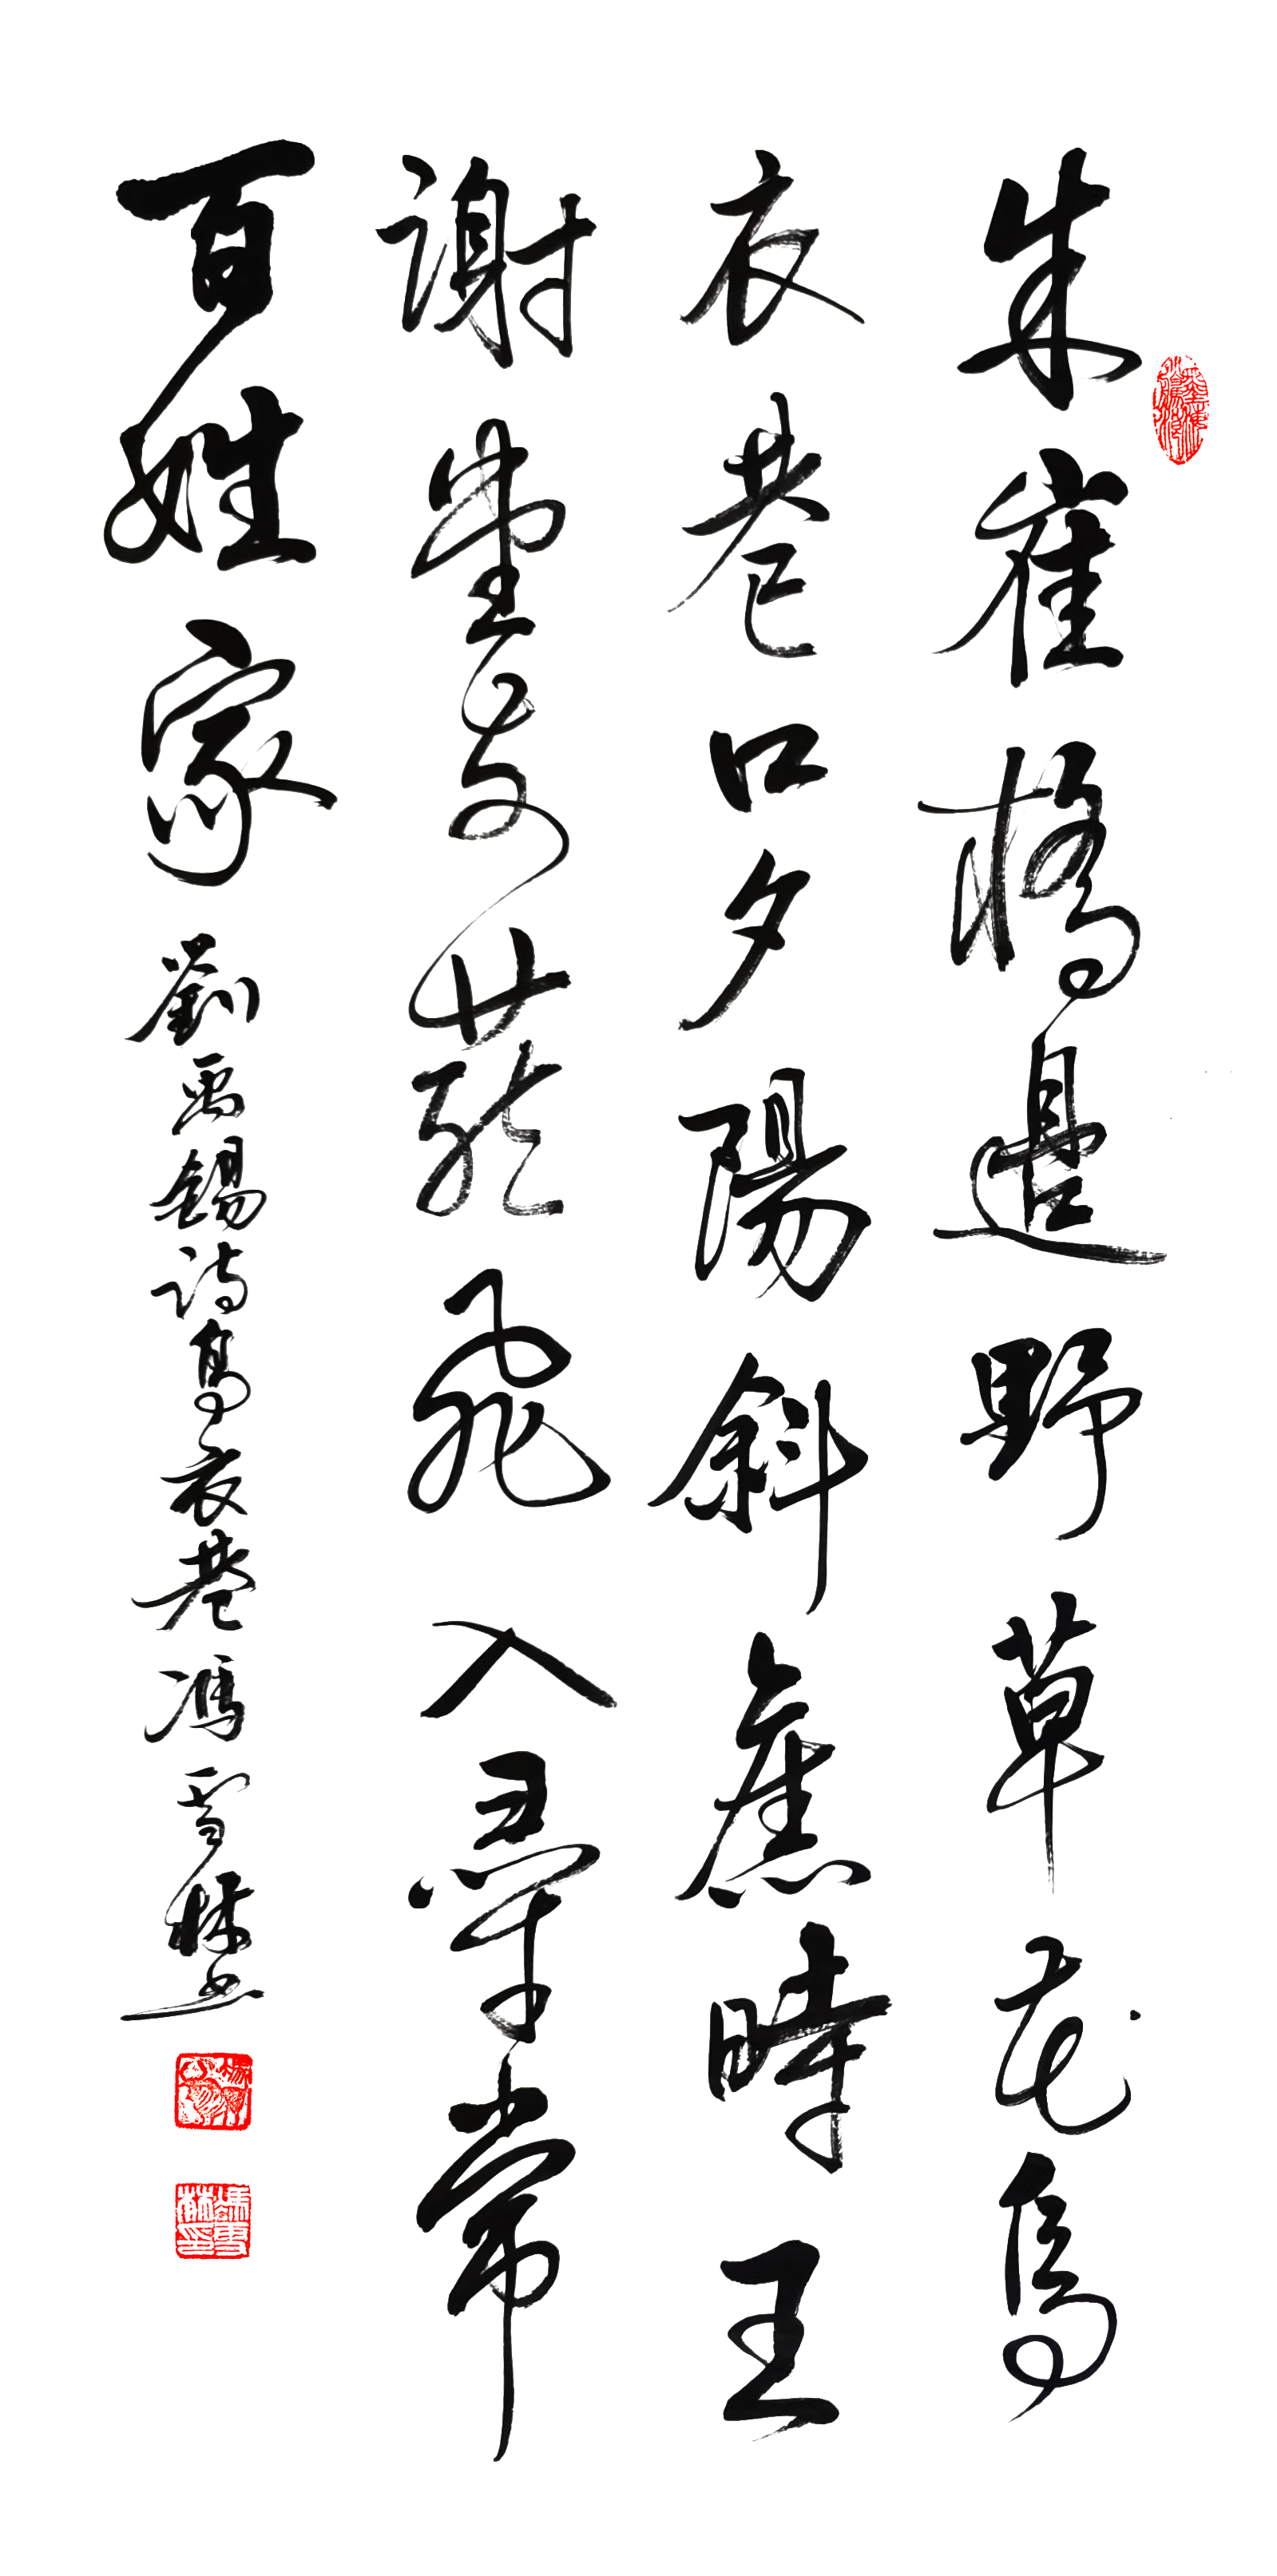 朱雀橋邊野草花烏
衣巷口夕陽斜舊時王
謝堂前燕飛入尋常
百姓家
劉禹錫詩烏衣巷 馮雪林書